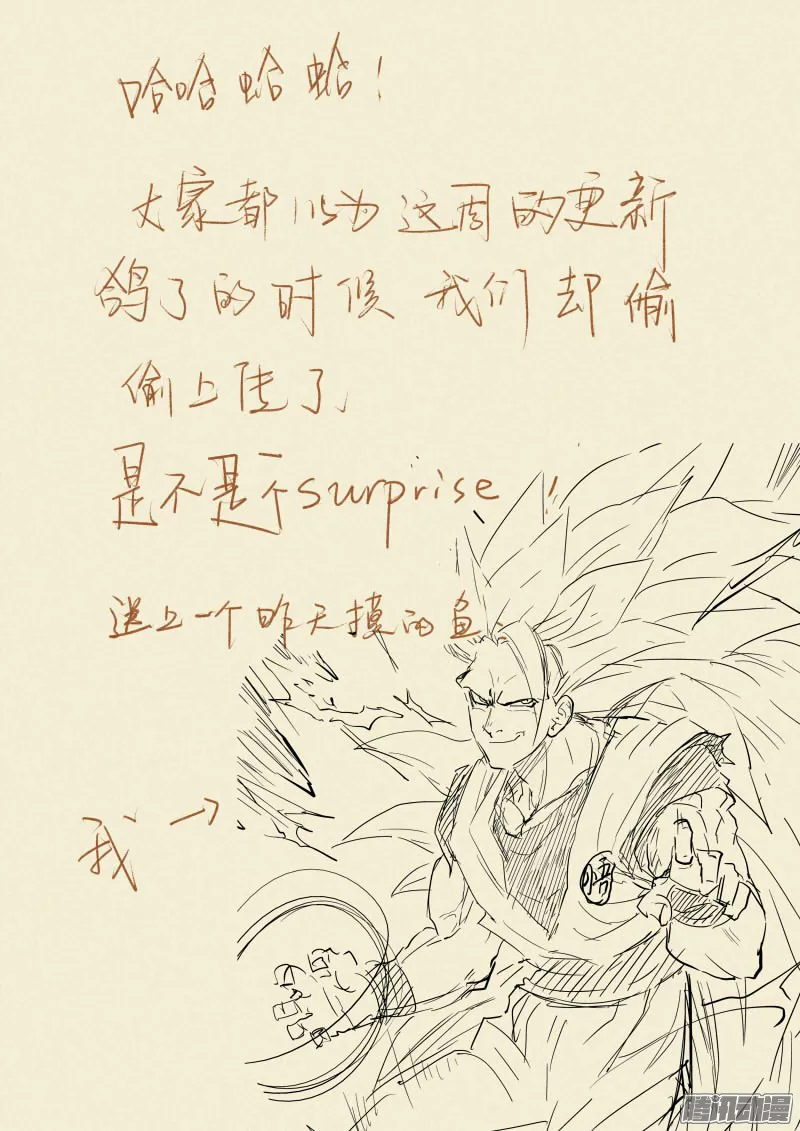 哈哈蛤蛤！
大家都以为这周的更新
鸽了的时候 我们却偷
偷上传了，
是不是个surprise！
送上一个昨天摸的鱼。
我→
悟
腾讯动漫